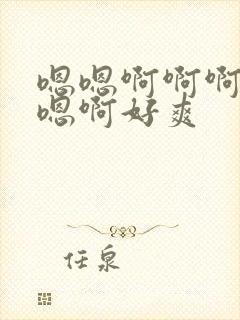 嗯嗯啊啊啊
嗯啊好爽
任泉